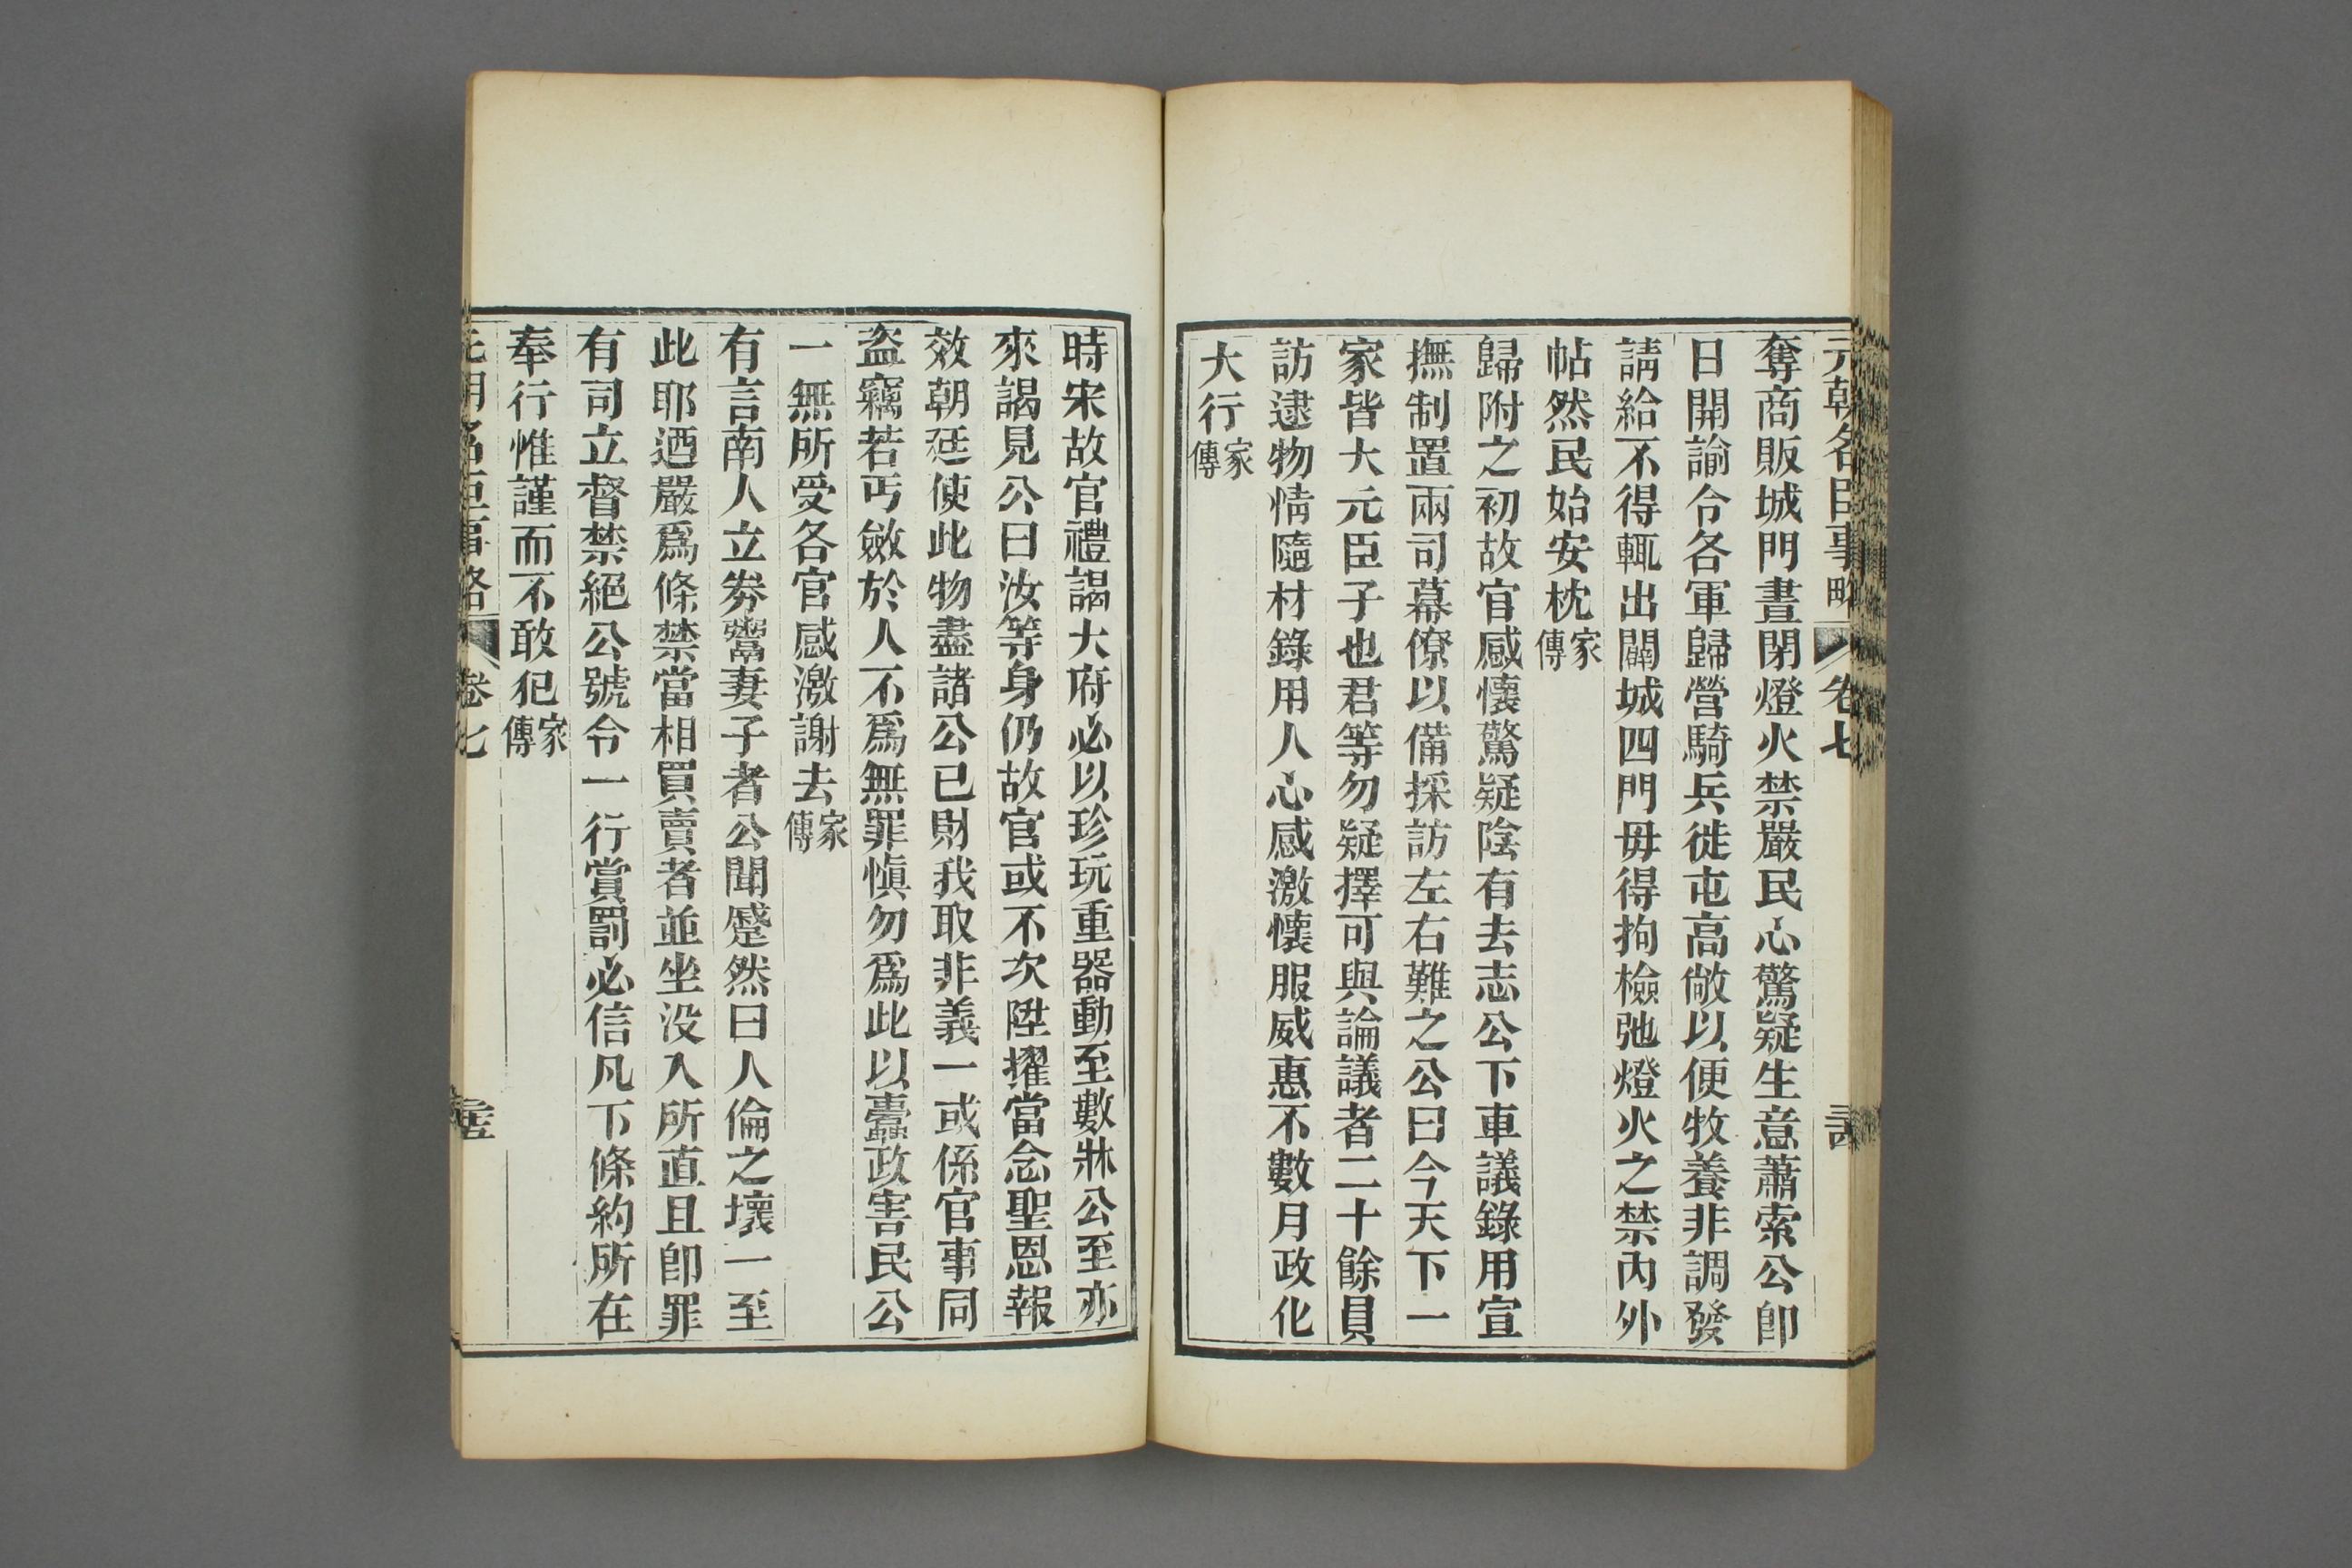 元朝名臣事略 卷七
奪商販城門晝閉燈火禁嚴民心驚疑生意蕭索公卽
日開諭令各軍歸營騎兵徙屯高敞以便牧養非調發
請給不得輒出闢城四門毋得拘檢弛燈火之禁內外
帖然民始安枕家傳
歸附之初故官感懷驚疑陰有去志公下車議錄用宣
撫制置兩司幕僚以備採訪左右難之公曰今天下一
家皆大元臣子也君等勿疑擇可與論議者二十餘員
訪逮物情隨材錄用人心感激懷服威惠不數月政化
大行家傳
時宋故官禮謁大府必以珍玩重器動至數牀公至亦
來謁見公曰汝等身仍故官或不次陞擢當念聖恩報
效朝廷使此物盡諸公已財我取非義一或係官事同
盜竊若丐斂於人不爲無罪愼勿爲此以蠹政害民公
一無所受各官感激謝去家傳
有言南人立券鬻妻子者公聞蹙然曰人倫之壞一至
此耶迺嚴爲條禁當相買賣者並坐没入所直且卽罪
有司立督禁絕公號令一行賞罰必信凡下條約所在
奉行惟謹而不敢犯家傳
元朝名臣事略 卷七 二十五